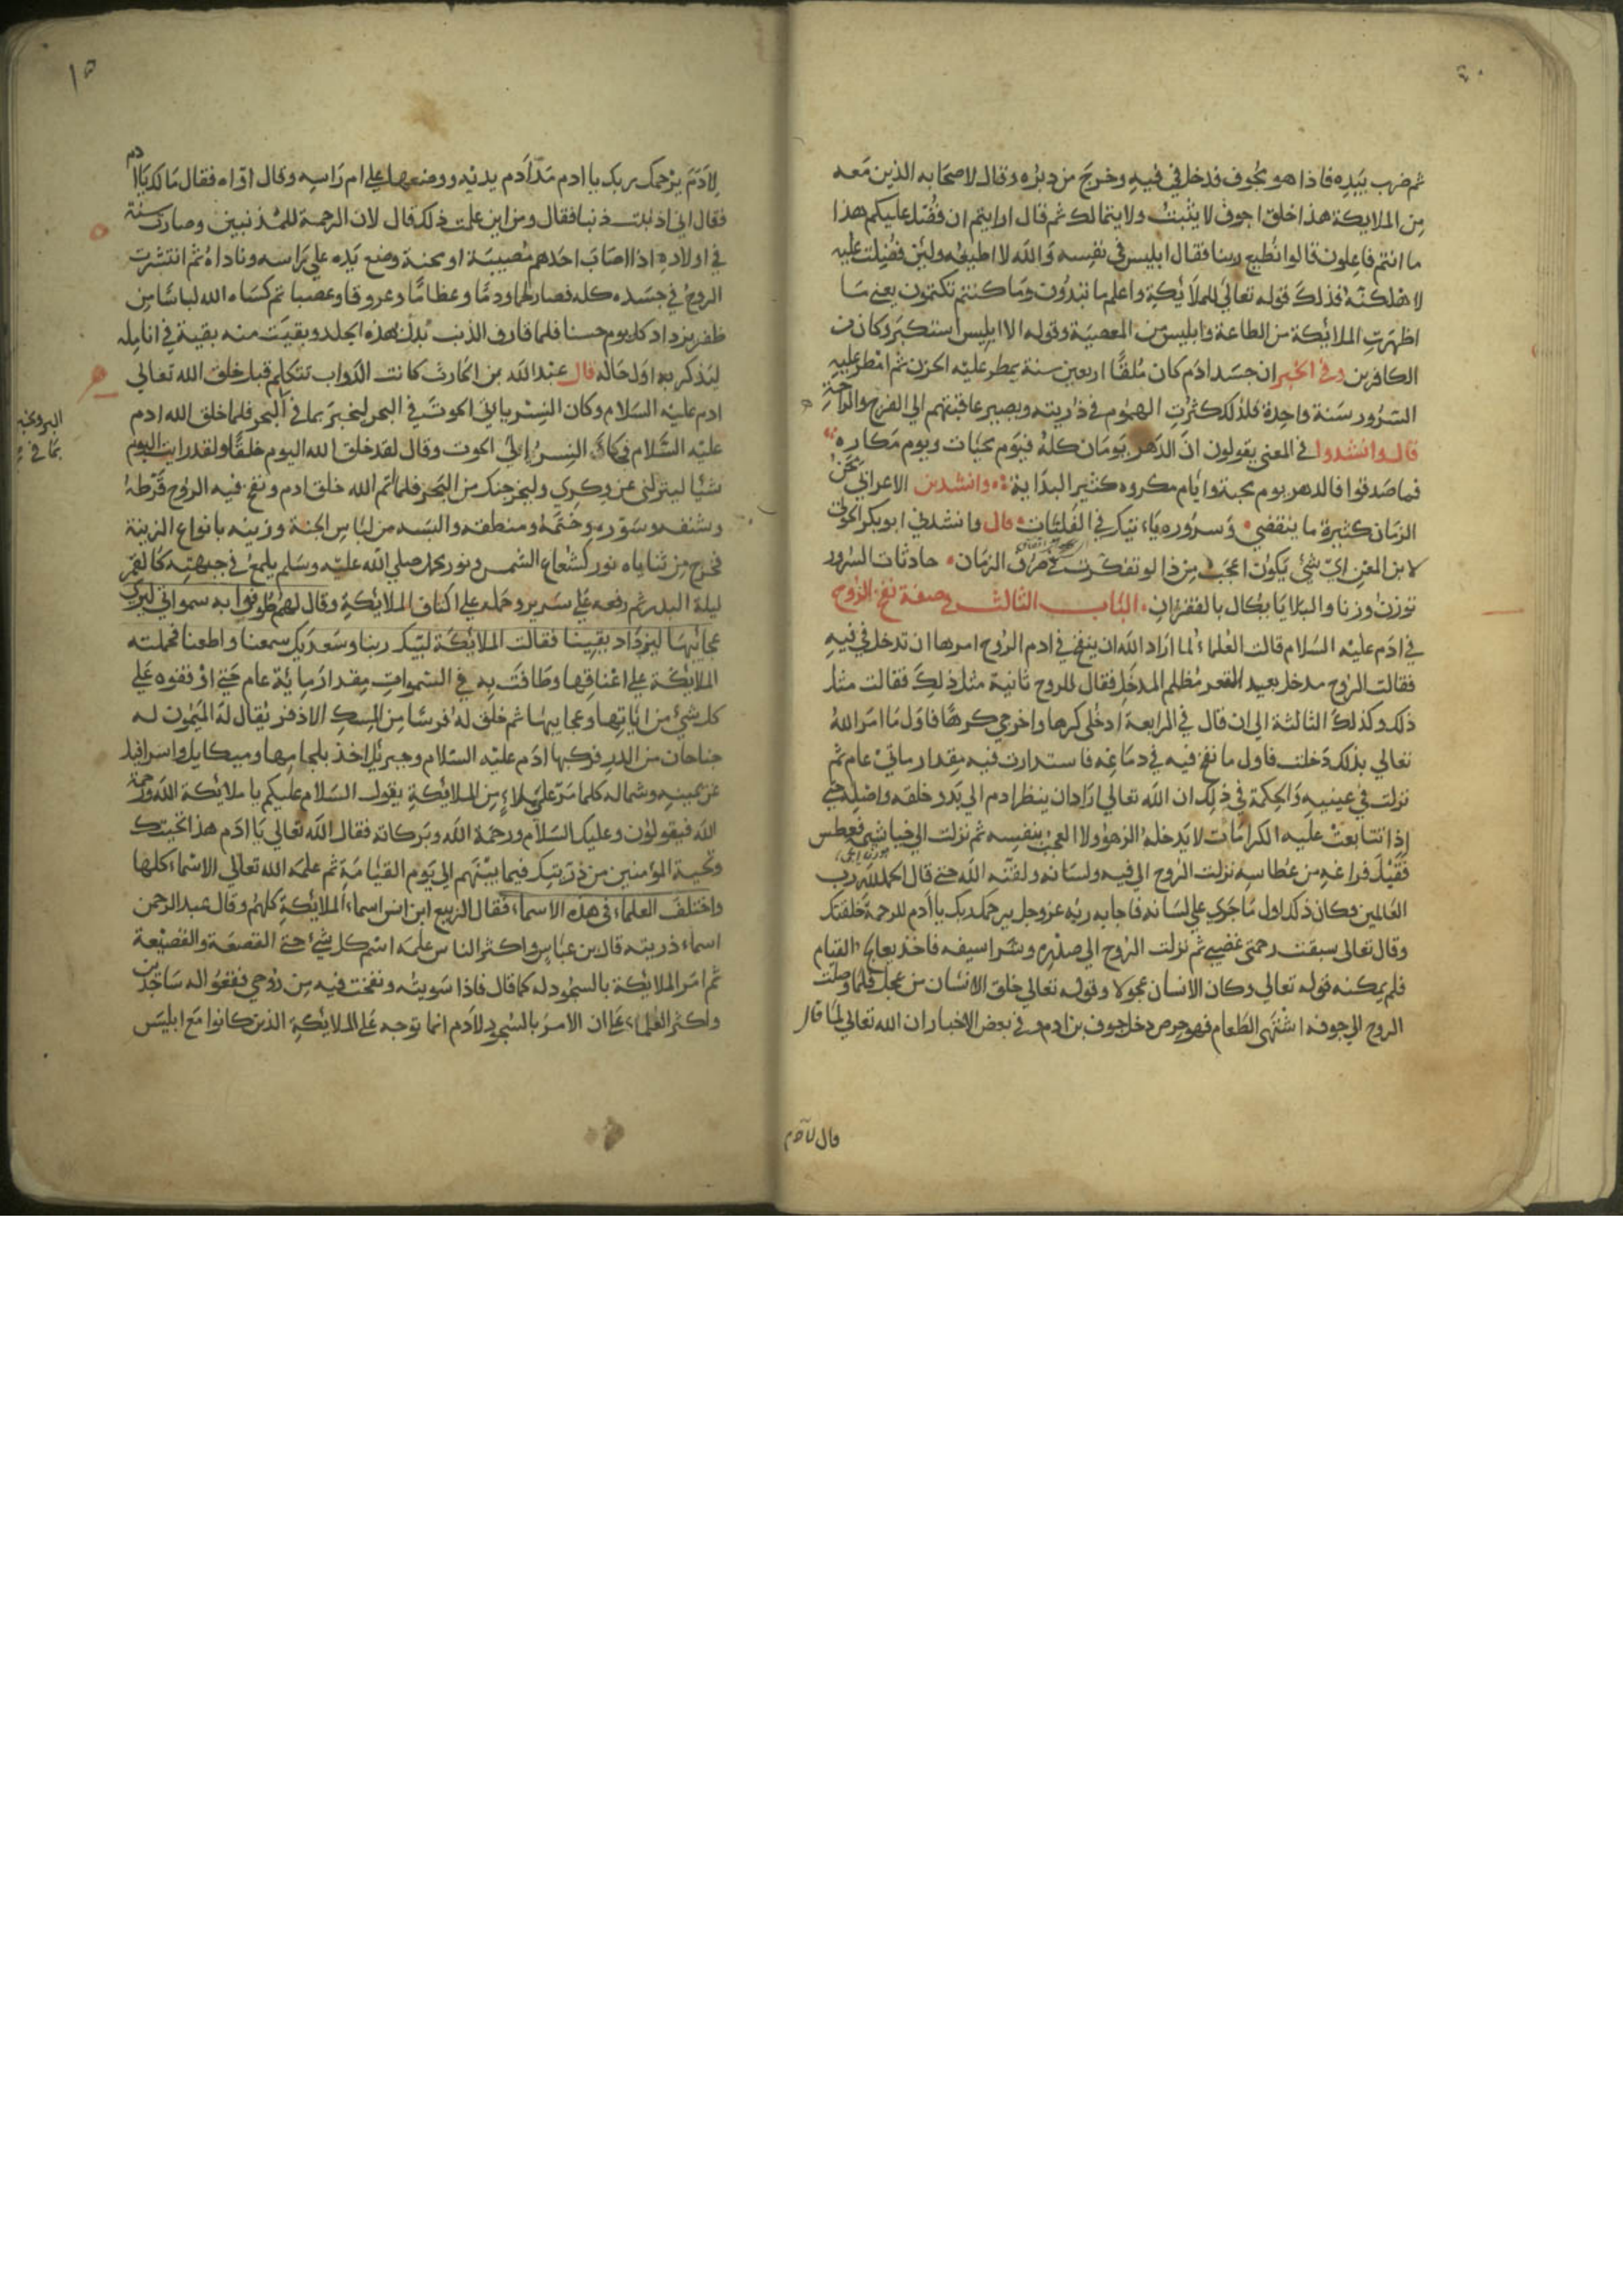 ثم ضرب بيده فاذا هو مجوف فدخل في فيه وخرج من دبره وقال لاصحابه الذين معه
من الملايكة هذا خلق اجوف لا يثبت ولا يتمالك ثم قال ارايتم ان فضل عليكم هذا
ما انتم فاعلون قالوا نطيع ربنا فقال ابليس في نفسه والله لا اطيعه ولين فضلت عليه
لاهلكنه فذلك قوله تعالي للملايكة واعلم ما تبدون وما كنتم تكتمون يعني ما
اظهرت الملائكة من الطاعة وابليس من المعصية وقوله الا ابليس استكبر وكان من
الكافرين وفي الخبر ان جسد ادم كان ملقا اربعين سنة يمطر عليه الحزن ثم امطر عليه
السرور سنة واحدة فلذلك كثرت الهموم في ذريته ويصير عاقبتهم الي الفرح والراحة
قال وانشدوا في المعني يقولون ان الدهر يومان كله فيوم محبات ويوم مكاره
فما صدقوا فالدهر يوم محبة وايام مكروه كثير البداية وانشدنى الاعرابي محن
الزمان كثيرة ما ينقضي وسروره ياتيك في الفلتات قال وانشدني ابوبكر
لابن المعتز اي شئ يكون اعجب من ذا لو تفكرت في صرف الزمان حادثات السرور
توزن وزنا والبلايا بكال بالقفزان الباب الثالث في صفة نفخ الروح
في ادم عليه السلام قالت العلماء لما اراد الله ان ينفخ في ادم الروح امرها ان تدخل في فيه
فقالت الروح مدخل بعيد القعر مظلم المدخل فقال للروح ثانية مثل ذلك فقالت مثل
ذلك وكذلك الثالثة الي ان قال في الرابعة ادخلي كرها واخرجي كرها فاول ما امر الله
تعالي بذلك دخلت فاول ما نفخ فيه في دماغه فاستدارت فيه مقدار مائتي عام ثم
نزلت في عينيه والحكمة في ذلك ان الله تعالي اراد ان ينظر ادم الي بدو خلقه واصله حتي
اذا تتابعت عليه الكرامات لا يدخله الزهو ولا العجب بنفسه ثم نزلت الي خياشيمه فعطس
فقبل فراغه من عطاسه نزلت الروح الي فيه ولسانه ولقنه الله حتي قال الحمد لله رب
العالمين وكان ذلك اول ما جري علي لسانه فاجابه ربه عزوجل يرحمك ربك يا ادم للرحمة خلقتك
وقال تعالى سبقت رحمتي غضبي ثم نزلت الروح الي صدره وشراسيفه فاخذ يعالج القيام
فلم يمكنه قوله تعالي وكان الانسان عجولا وقوله تعالي خلق الانسان من عجل فلما وصلت
الروح الي جوفه اشتهى الطعام فهو حرص دخل جوف بن ادم وفي بعض الاخبار ان الله تعالي لما قال
قال لآدم
١٥
لآدم يرحمك ربك يا ادم مد آدم يديه ووضعها علي ام راسه وقال اواه فقال مالك يا ادم
فقال اني اذنبت ذنبا فقال ومن اين علمت ذلك قال لان الرحمة للمذنبين وصارت سنة
في اولاده اذا اصاب احدهم مصيبة او محنة وضع يده علي راسه وناداه ثم انتشرت
الروح في جسده كله فصار لحما ودما وعظاما وعروقا وعصبا ثم كساه الله لباسا من
ظفر يزداد كل يوم حسنا فلما قارف الذنب بدل بهذه الجلد وبقيت منه بقية في انامله
ليذكر به اول حاله قال عبد الله بن الحارث كانت الدواب تتكلم قبل خلق الله تعالي
ادم عليه السلام وكان النسر ياتي الحوت في البحر ليخبر بما في البحر فلما خلق الله ادم
البر ويخبر
بما في
عليه السلام فكان النسر الي الحوت وقال لقد خلق الله اليوم خلقا ولقد رايت اليوم
شيا لينزلني عن وكري وليخرجنك من البحر فلما اتم الله خلق ادم ونفخ فيه الروح قرطه
وشنفه وسوره وختمه ومنطقه والبسه من لباس الجنة وزينه بانواع الزينة
فخرج من ثناياه نور كشعاع الشمس ونور محمد صلي الله عليه وسلم يلمع في جبهته كالقمر
ليلة البدر ثم رفعه علي سرير وحمله علي اكتاف الملائكة وقال لهم طوفوا به سمواتي ليري
عجائبها ليزداد يقينا فقالت الملائكة لبيك ربنا وسعديك سمعنا واطعنا فحملته
الملائكة علي اعناقها وطافت به في السموات مقدار مائة عام حتي اوقفوه علي
كل شئ من اياتها وعجايبها ثم خلق له فرسا من المسك الاذفر يقال له الميمون له
جناحان من الدر فركبها ادم عليه السلام وجبريل اخذ بلجامها وميكايل واسرافيل
عن يمينه وشماله كلما مر علي ملاء من الملائكة يقول السلام عليكم يا ملائكة الله ورحمة
الله فيقولون وعليك السلام ورحمة الله وبركاته فقال الله تعالي يا ادم هذا تحيتك
وتحية المؤمنين من ذريتك فيما بينهم الي يوم القيامة ثم علمه الله تعالي الاسماء كلها
واختلف العلماء في هذه الاسماء فقال الربيع ابن انس اسماء الملائكة كلهم وقال عبد الرحمن
اسماء ذريته قال بن عباس واكثر الناس علمه اسم كل شئ حتي القصعة والقصيعة
ثم امر الملائكة بالسجود له كما قال فاذا سويته ونفخت فيه من روحي فقعوا له ساجدين
واكثر العلماء علي ان الامر بالسجود لادم انما توجه علي الملائكة الذين كانوا مع ابليس